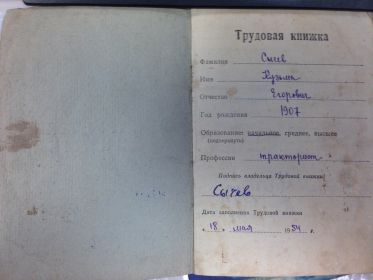 Трудовая книжка
Фамилия Сычев
Имя Кузьма
Отчество Егорович
Год рождения 1907
Образование: начальное, среднее, высшее
(подчеркнуть)
Профессия тракторист
Подпись владельца Трудовой книжки
Сычев
Дата заполнения Трудовой книжки
"18" мая 1954 г.